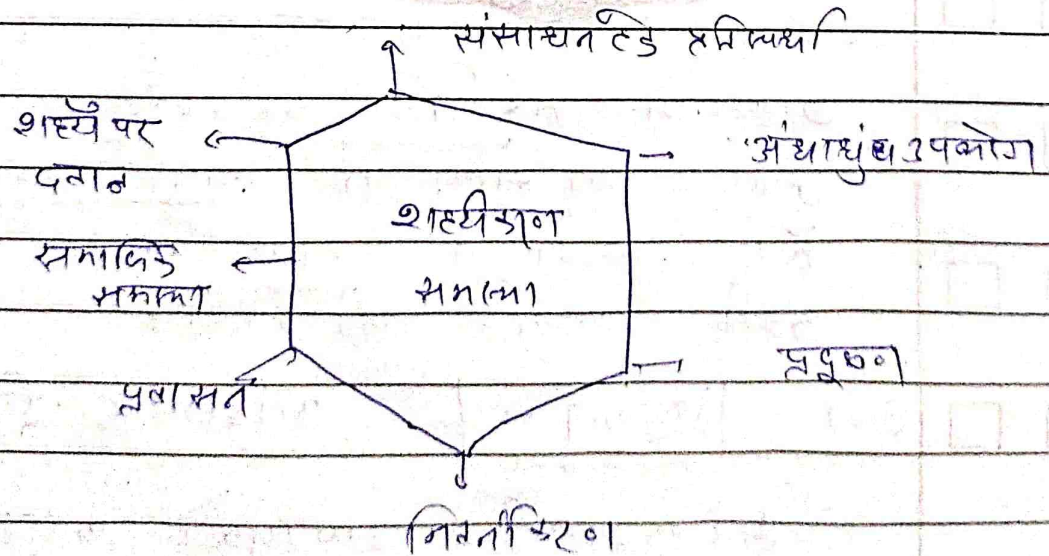 संसाधन हेतु प्रतिस्पर्धा
शहरों पर
दबाव
अंधाधुंध उपभोग
शहरीकरण
समस्या
सामाजिक
समस्या
प्रदूषण
प्रवासन